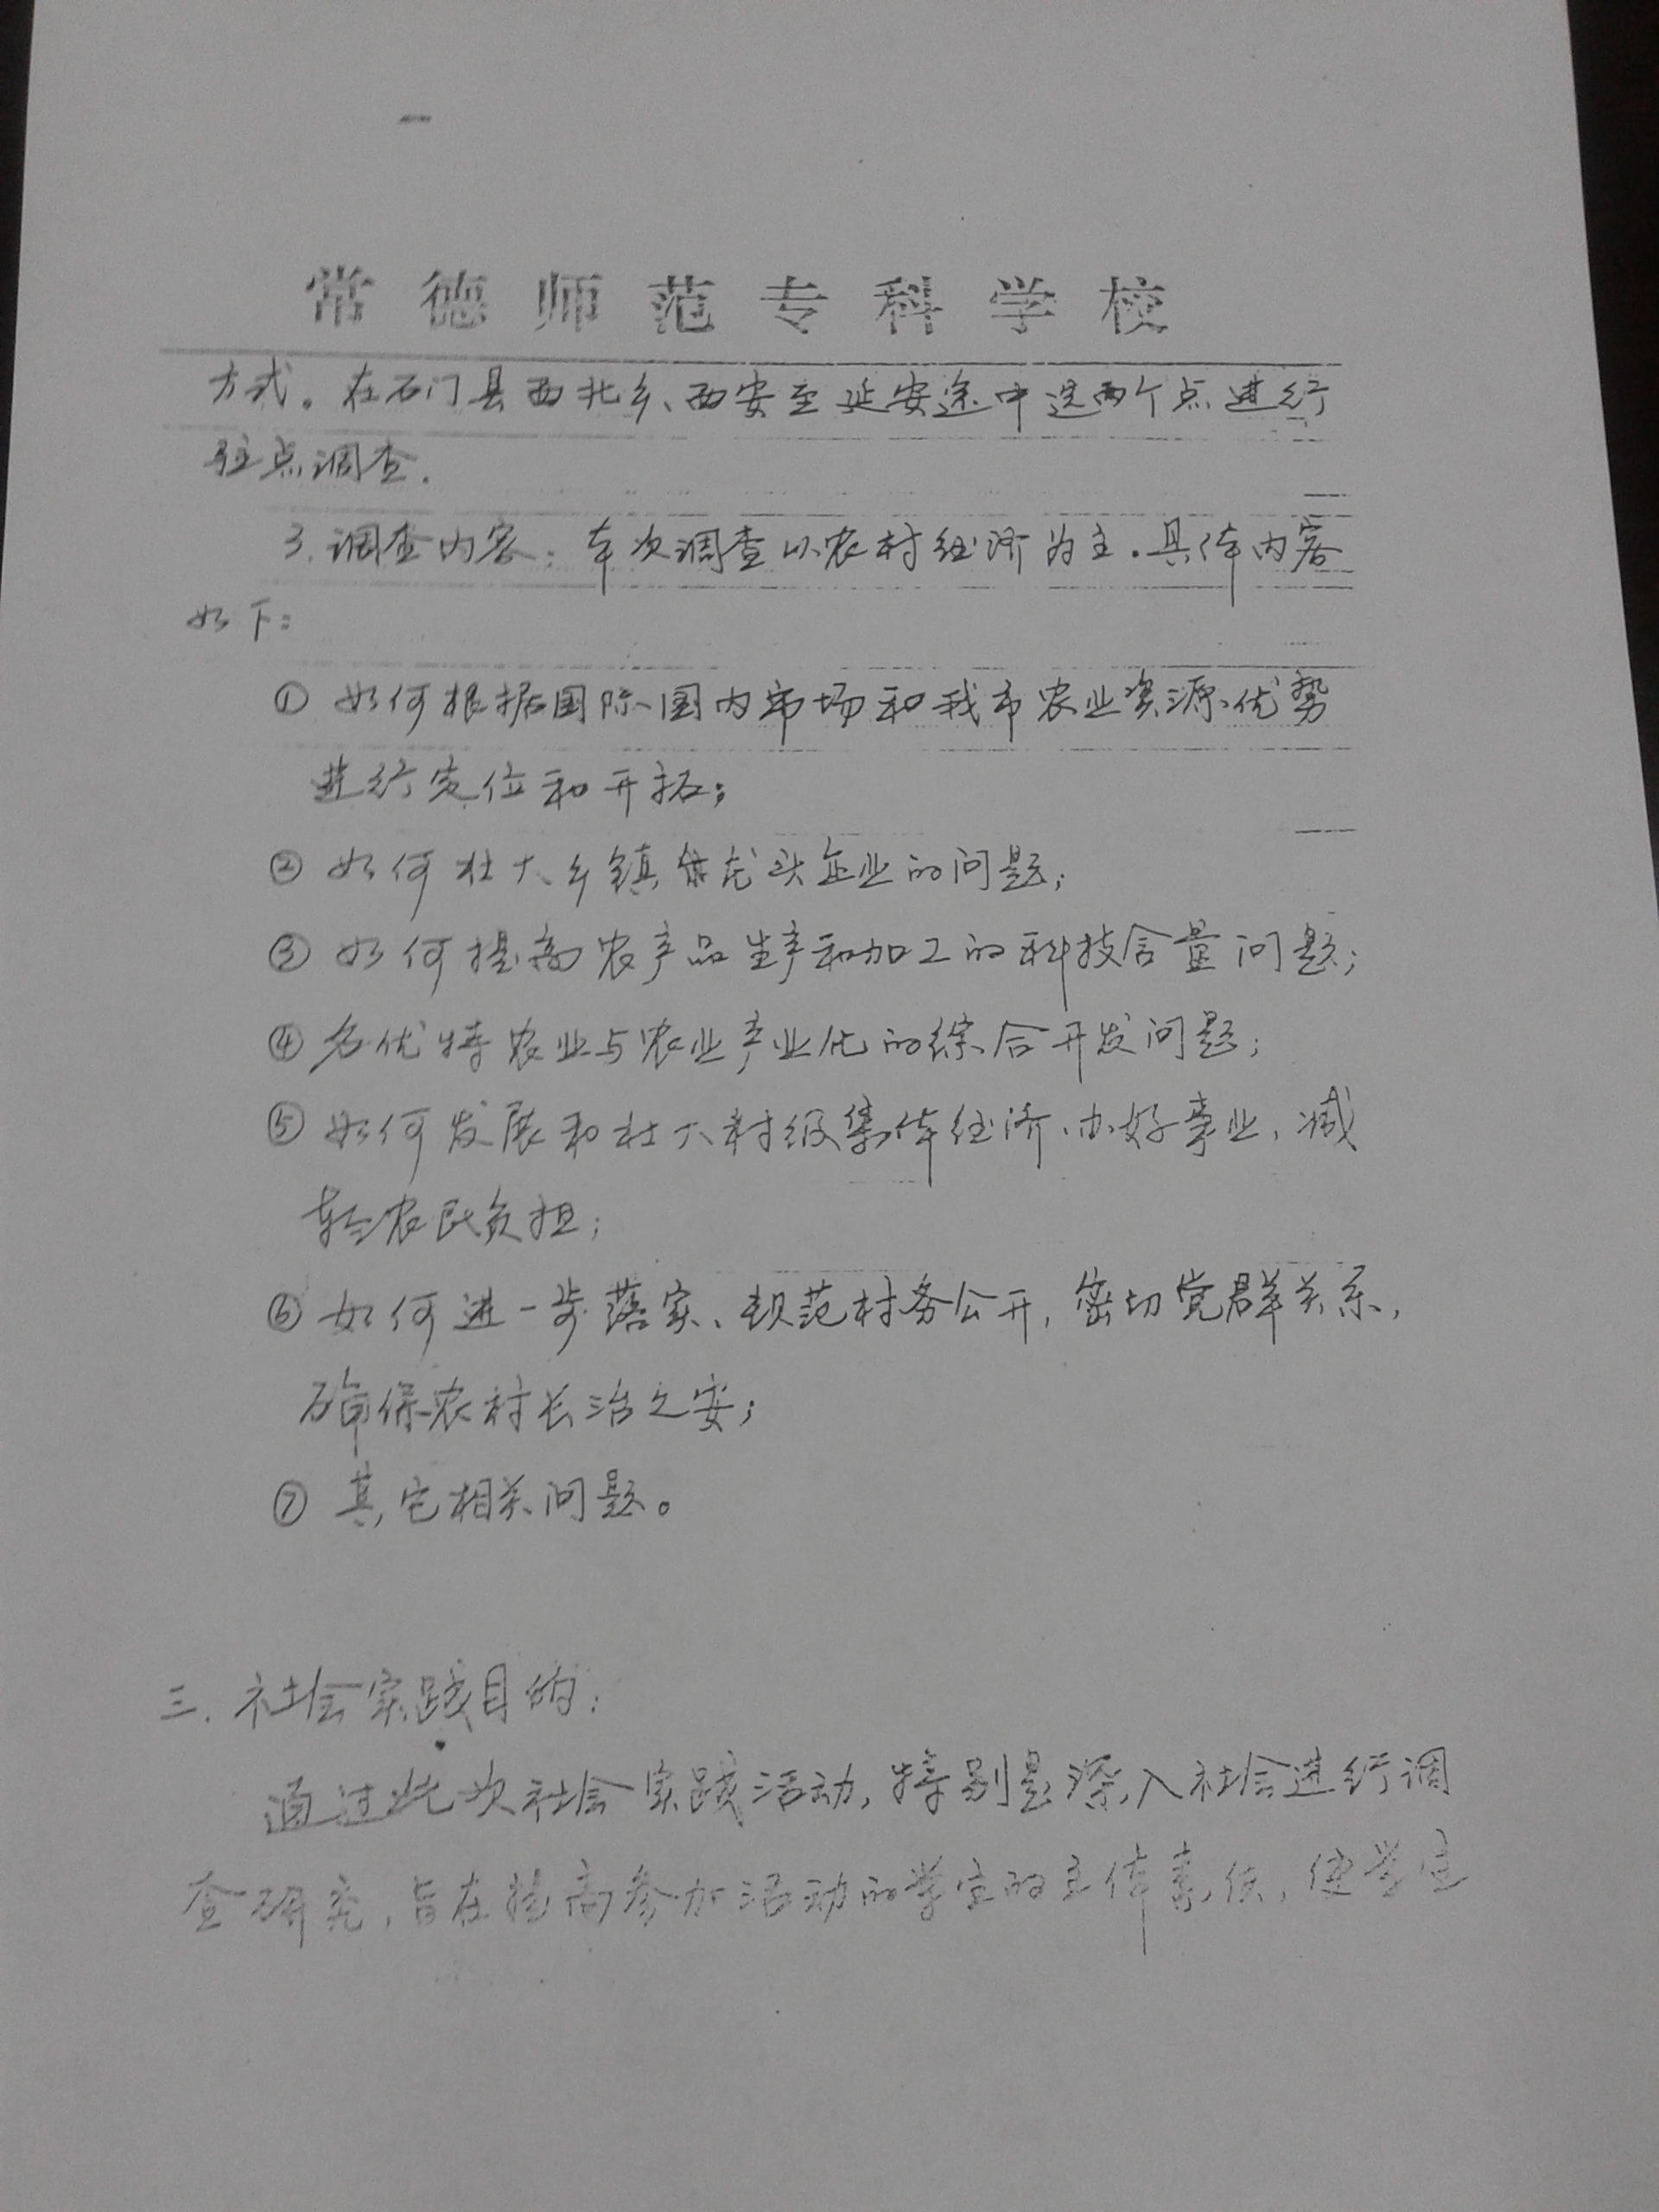 常德师范专科学校
方式。在石门县西北乡、西安至延安途中选两个点进行
驻点调查.
3.调查内容：本次调查以农村经济为主.具体内容
如下：
① 如何根据国际、国内市场和我市农业资源优势
进行定位和开拓；
② 如何壮大乡镇龙头企业的问题；
③ 如何提高农产品生产和加工的科技含量问题；
④ 名优特农业与农业产业化的综合开发问题；
⑤ 如何发展和壮大村级集体经济、办好事业、减
轻农民负担；
⑥ 如何进一步落实、规范村务公开，密切党群关系，
确保农村长治久安；
⑦ 其它相关问题。
三.社会实践目的：
通过此次社会实践活动，特别是深入社会进行调
查研究，旨在提高参加活动的学生的主体素质，使学生